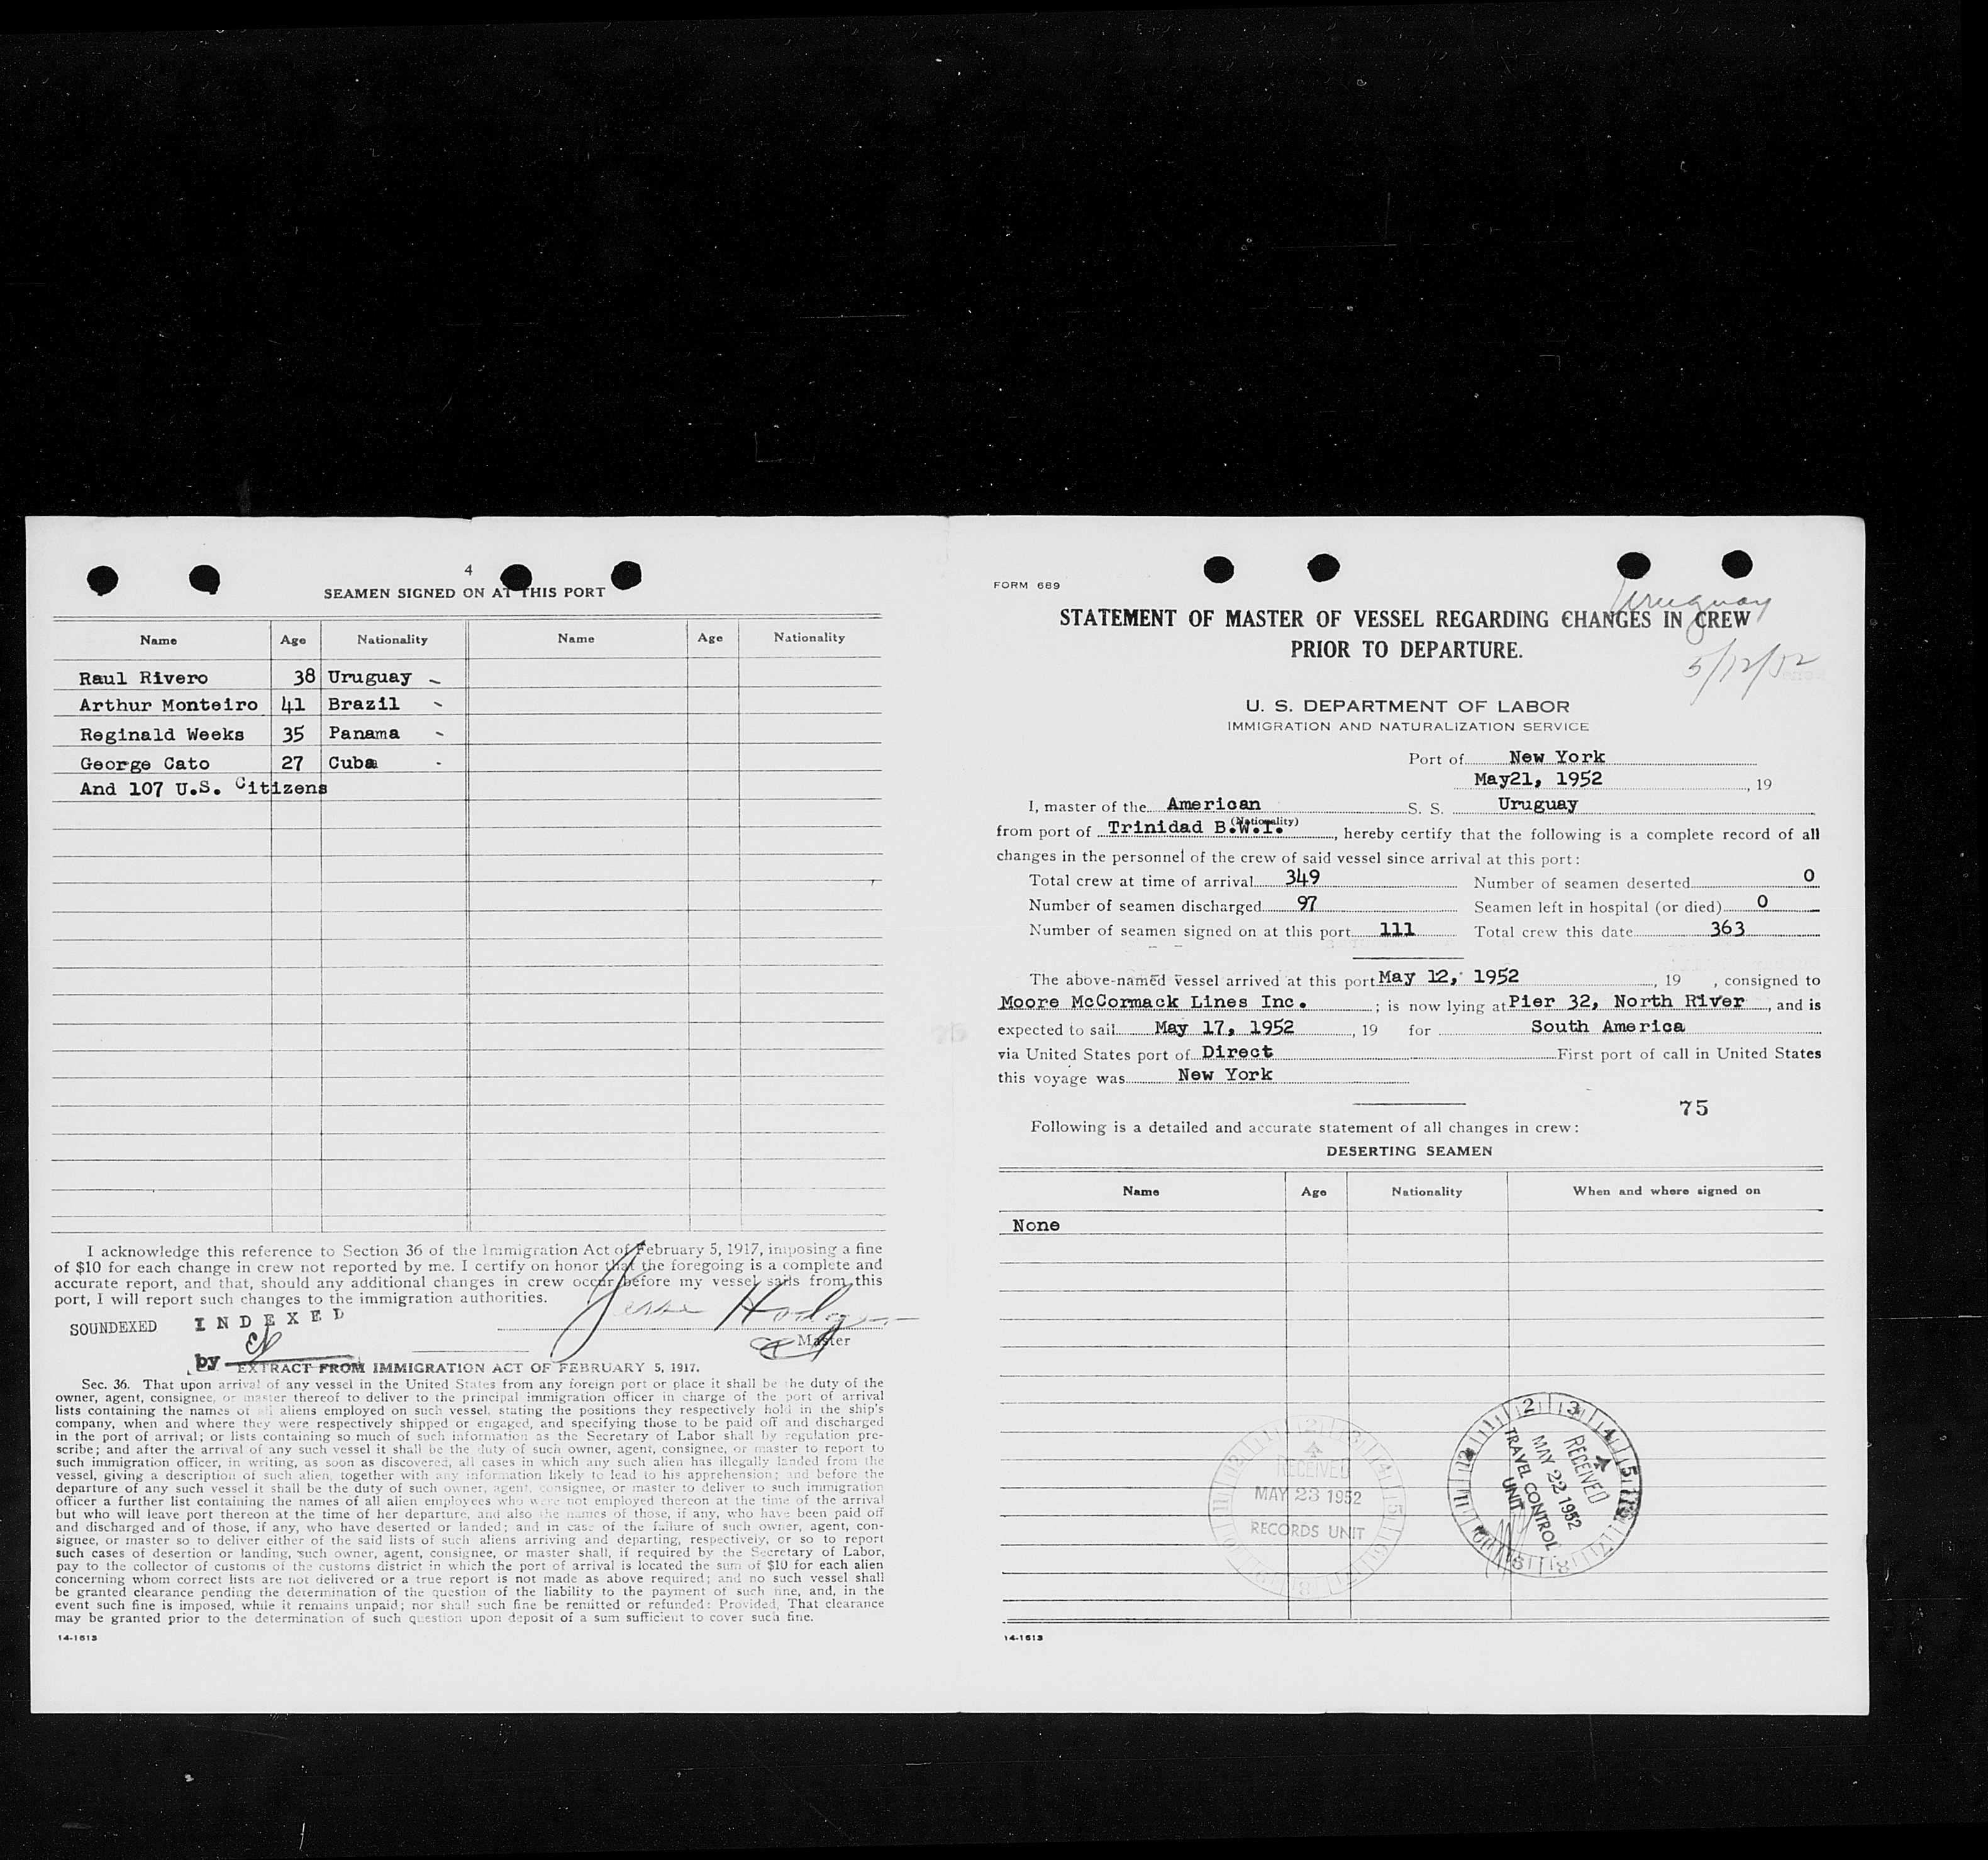 4
SEAMEN SIGNED ON AT THIS PORT
Name Age Nationality Name Age Nationality
Raul Rivero 38 Uruguay -
Arthur Monteiro 41 Brazil -
Reginald Weeks 35 Panama -
George Cato 27 Cuba -
And 107 U.S. Citizens
I acknowledge this reference to Section 36 of the Immigration Act of February 5, 1917, imposing a fine
of $10 for each change in crew not reported by me. I certify on honor that the foregoing is a complete and
accurate report, and that, should any additional changes in crew occur before my vessel sails from this
port, I will report such changes to the immigration authorities.
SOUNDEXED INDEXED
Jesse Hodg
Master
by
EXTRACT FROM IMMIGRATION ACT OF FEBRUARY 5, 1917.
Sec. 36. That upon arrival of any vessel in the United States from any foreign port or place it shall be the duty of the
owner, agent, consignee, or master thereof to deliver to the principal immigration officer in charge of the port of arrival
lists containing the names of all aliens employed on such vessel, stating the positions they respectively hold in the ship's
company, when and where they were respectively shipped or engaged, and specifying those to be paid off and discharged
in the port of arrival; or lists containing so much of such information as the Secretary of Labor shall by regulation pre-
scribe; and after the arrival of any such vessel it shall be the duty of such owner, agent, consignee, or master to report to
such immigration officer, in writing, as soon as discovered, all cases in which any such alien has illegally landed from the
vessel, giving a description of such alien, together with any information likely to lead to his apprehension; and before the
departure of any such vessel it shall be the duty of such owner, agent, consignee, or master to deliver to such immigration
officer a further list containing the names of all alien employees who were not employed thereon at the time of the arrival
but who will leave port thereon at the time of her departure, and also the names of those, if any, who have been paid off
and discharged and of those, if any, who have deserted or landed; and in case of the failure of such owner, agent, con-
signee, or master so to deliver either of the said lists of such aliens arriving and departing, respectively, or so to report
such cases of desertion or landing, such owner, agent, consignee, or master shall, if required by the Secretary of Labor,
pay to the collector of customs of the customs district in which the port of arrival is located the sum of $10 for each alien
concerning whom correct lists are not delivered or a true report is not made as above required; and no such vessel shall
be granted clearance pending the determination of the question of the liability to the payment of such fine, and, in the
event such fine is imposed, while it remains unpaid; nor shall such fine be remitted or refunded: Provided, That clearance
may be granted prior to the determination of such question upon deposit of a sum sufficient to cover such fine.
14-1613
FORM 689
Uruguay
STATEMENT OF MASTER OF VESSEL REGARDING CHANGES IN CREW
PRIOR TO DEPARTURE.
5/12/52
U. S. DEPARTMENT OF LABOR
IMMIGRATION AND NATURALIZATION SERVICE
Port of New York
May21, 1952, 19
I, master of the American S. S. Uruguay
(Nationality)
from port of Trinidad B.W.I., hereby certify that the following is a complete record of all
changes in the personnel of the crew of said vessel since arrival at this port:
Total crew at time of arrival 349 Number of seamen deserted 0
Number of seamen discharged 97 Seamen left in hospital (or died) 0
Number of seamen signed on at this port 111 Total crew this date 363
The above-named vessel arrived at this port May 12, 1952, 19 , consigned to
Moore McCormack Lines Inc. ; is now lying at Pier 32, North River, and is
expected to sail May 17, 1952, 19 for South America
via United States port of Direct First port of call in United States
this voyage was New York
75
Following is a detailed and accurate statement of all changes in crew:
DESERTING SEAMEN
Name Age Nationality When and where signed on
None
RECEIVED
MAY 23 1952
RECORDS UNIT
RECEIVED
MAY 22 1952
TRAVEL CONTROL
UNIT
14-1613